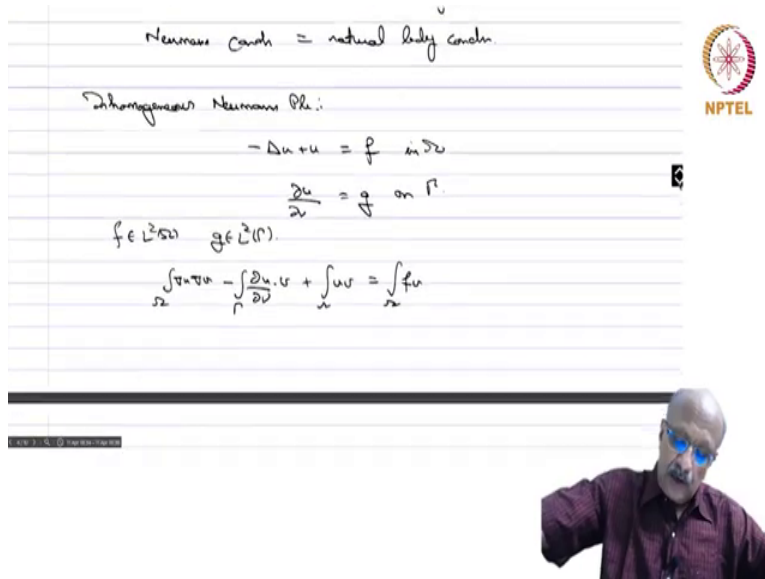 Neumann condn = natural bdry condn.
NPTEL
Inhomogeneous Neumann Pb.:
-Δu + u = f in Ω
∂u/∂ν = g on Γ.
f ∈ L²(Ω) g ∈ L²(Γ).
∫_Ω ∇u·∇v - ∫_Γ ∂u/∂ν · v + ∫_Ω uv = ∫_Ω fv